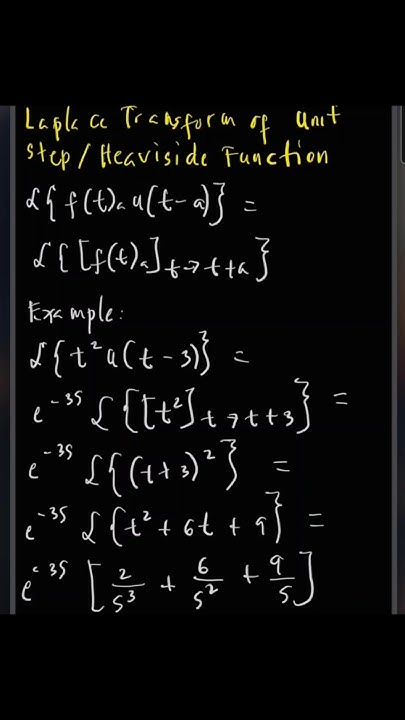 Laplace Transform of unit
step/Heaviside Function
ℒ{f(t)ₐ u(t-a)} =
ℒ{[f(t)ₐ]ₜ→ₜ₊ₐ}
Example:
ℒ{t² u(t-3)} =
e⁻³ˢ ℒ{[t²]ₜ→ₜ₊₃} =
e⁻³ˢ ℒ{(t+3)²} =
e⁻³ˢ ℒ{t² + 6t + 9} =
e⁻³ˢ [2/s³ + 6/s² + 9/s]